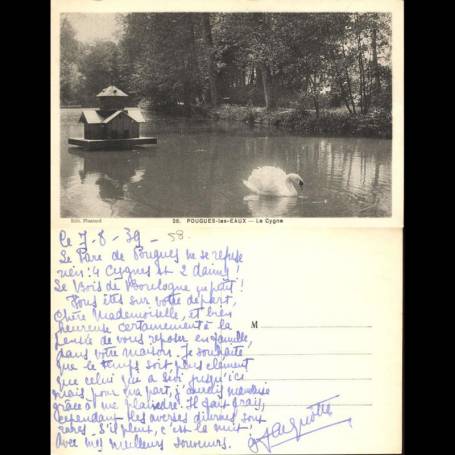 Edit. Phatané
20. POUGUES-les-EAUX — Le Cygne
Ce 7-8-39 - 58.
Le Parc de Pougues ne se refuse
rien : 4 Cygnes et 2 daims !
Le Bois de Boulogne en petit !
Vous êtes sur votre départ,
chère Mademoiselle, et bien
heureuse certainement à la
pensée de vous reposer en famille,
dans votre maison. Je souhaite
que le temps soit plus clément
que celui qui a sévi jusqu'ici
mais pour ma part, j'aurais mauvaise
grâce à me plaindre. Il fait frais,
cependant les averses diurnes sont
rares. S'il pleut, c'est la nuit !
Avec mes meilleurs souvenirs.
M